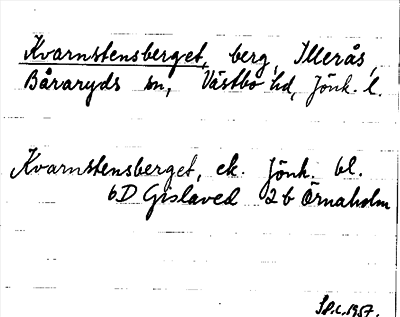 Kvarnstensberget, berg, Illerås,
Båraryds sn, Västbo hd, Jönk. l.
Kvarnstensberget, ek. Jönk. bl.
6D Gislaved 2b Örnaholm
1957.